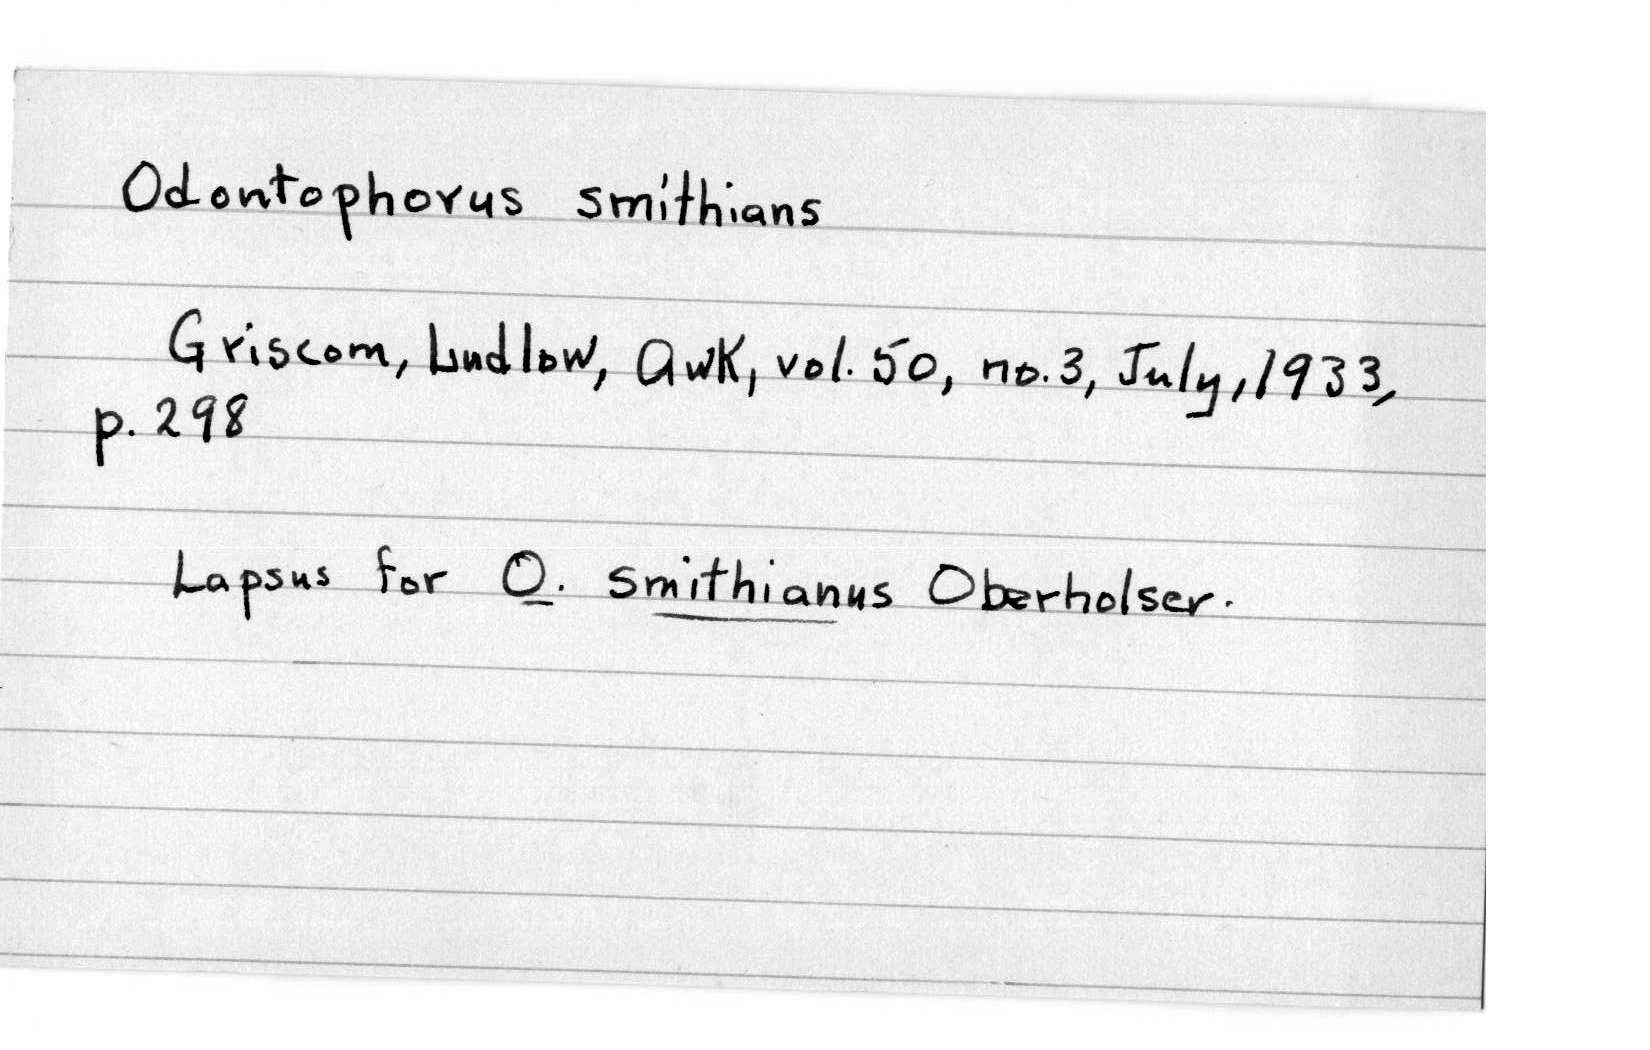 Odontophorus smithians
Griscom, Ludlow, Awk, vol. 50, no. 3, July, 1933,
p. 298
Lapsus for O. smithianus Oberholser.